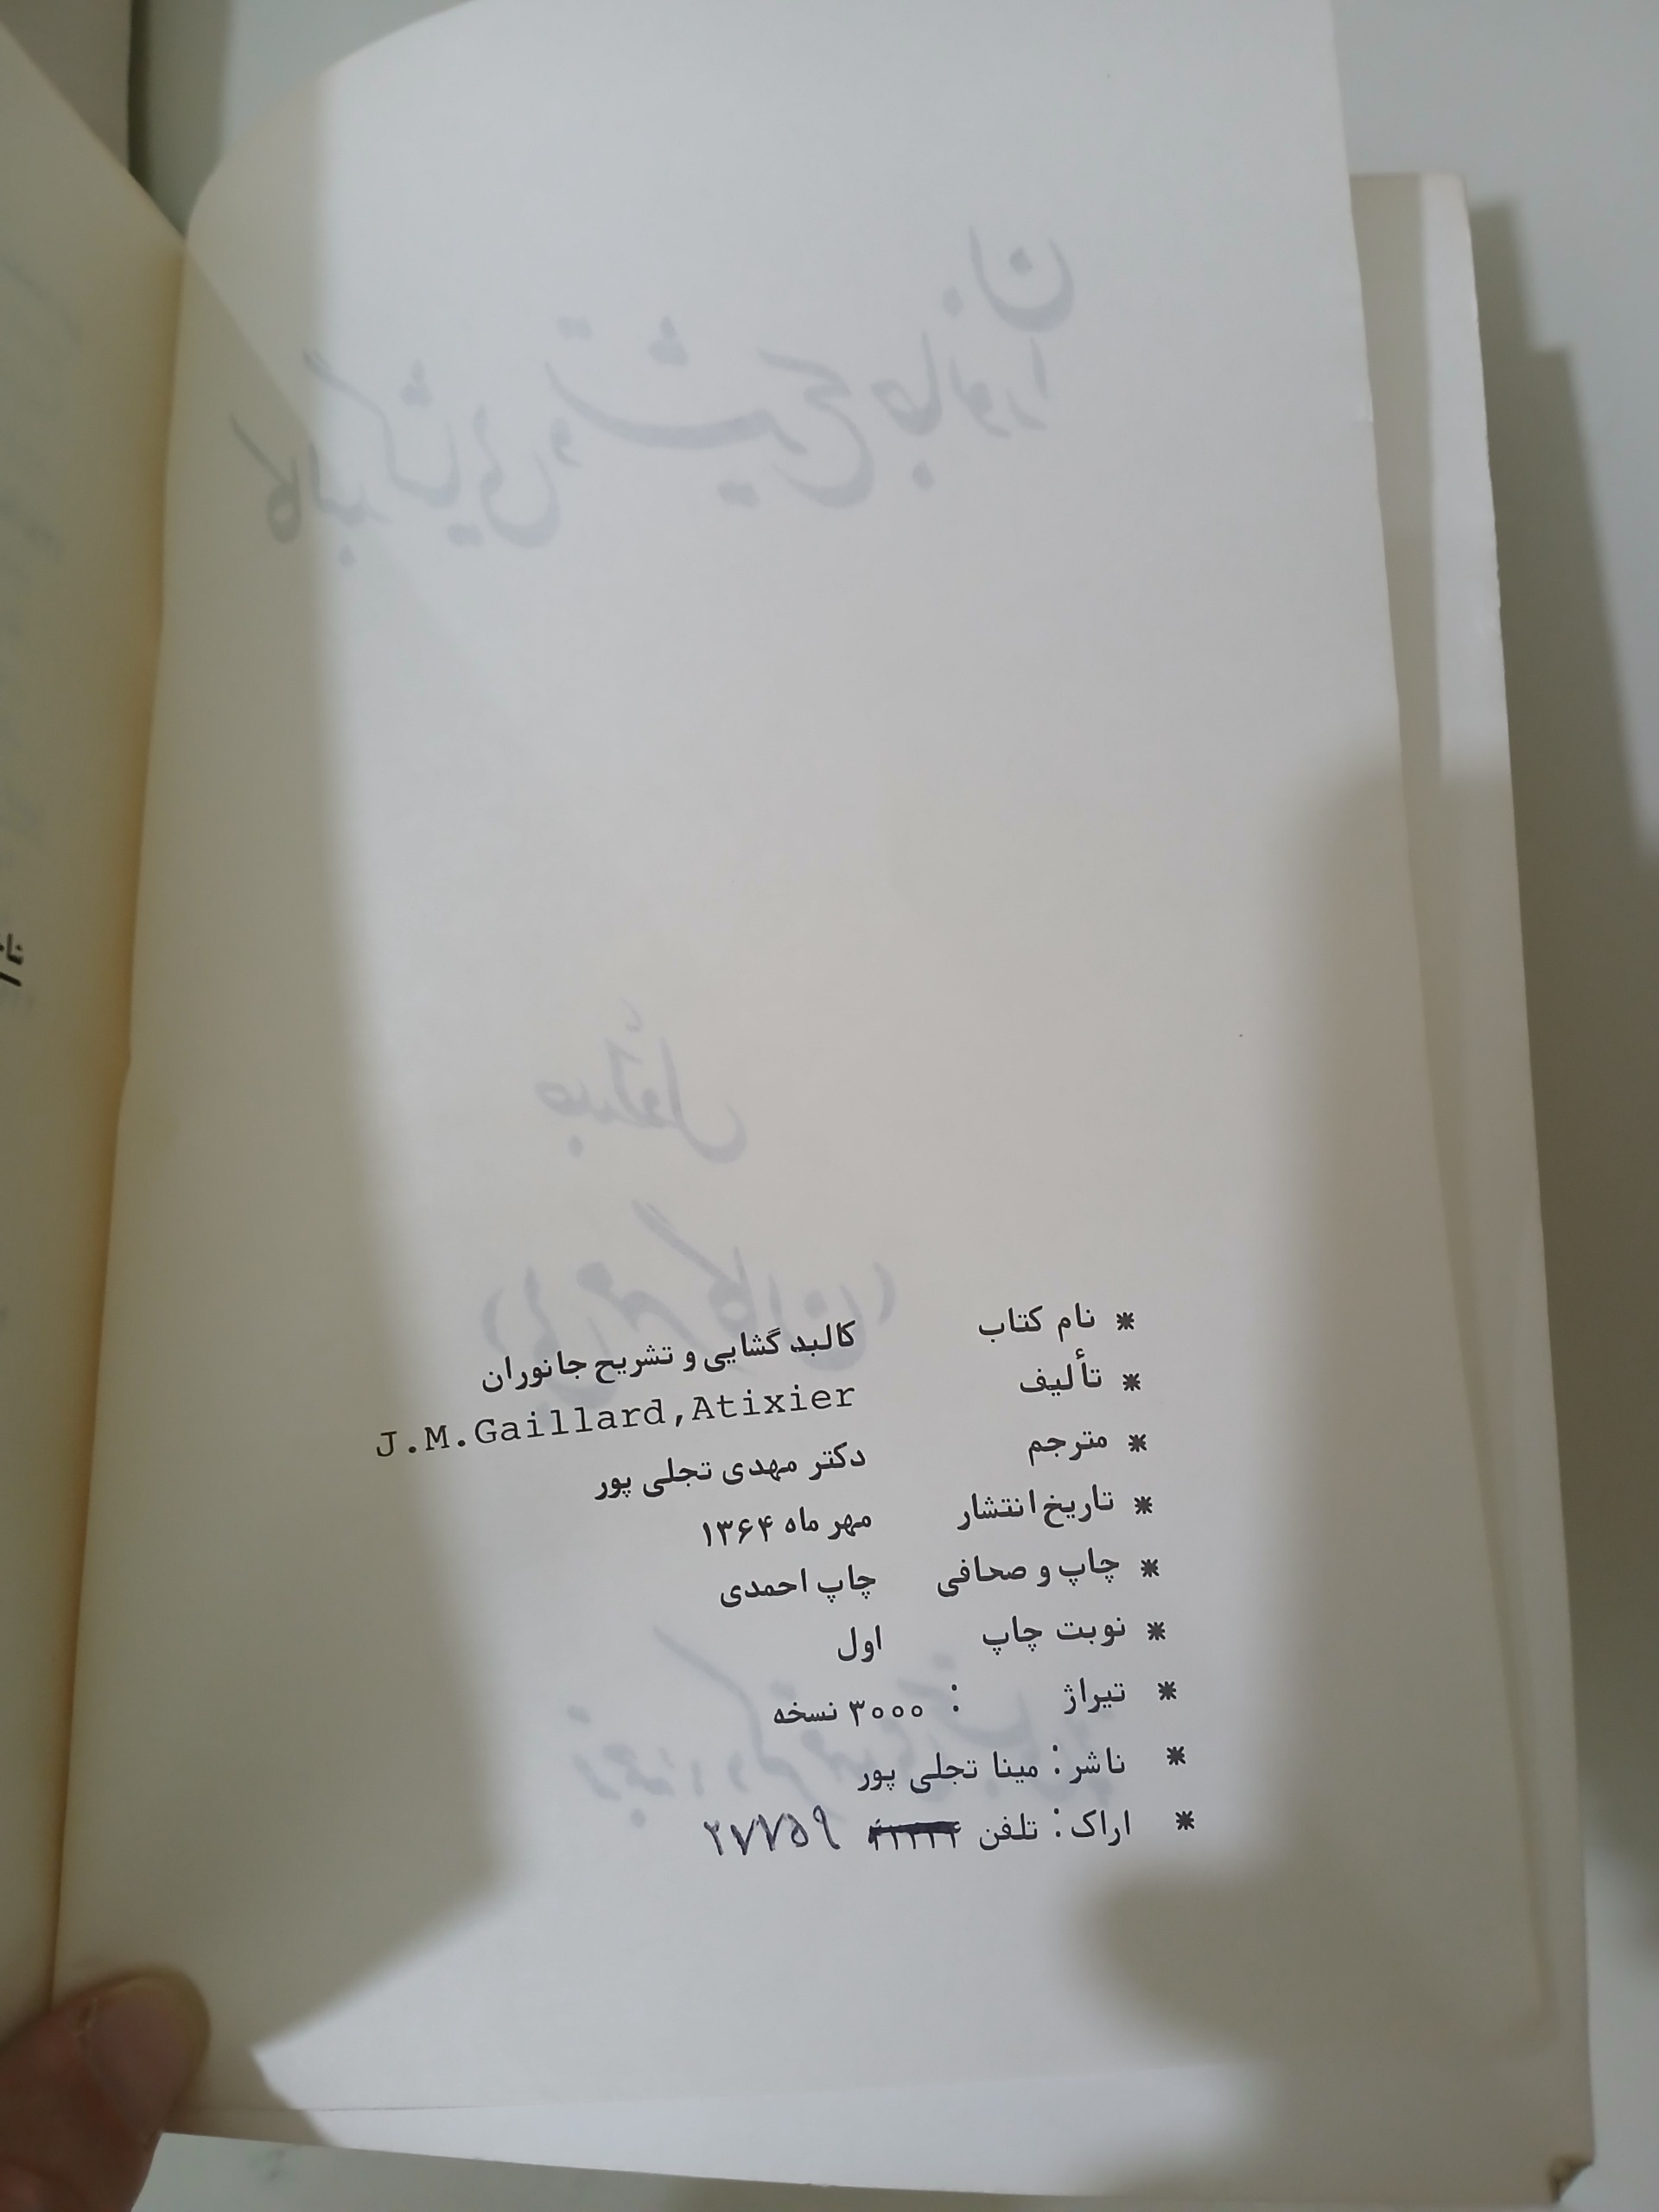 * نام کتاب کالبد گشایی و تشریح جانوران
* تألیف J.M.Gaillard,Atixier
* مترجم دکتر مهدی تجلی پور
* تاریخ انتشار مهر ماه ۱۳۶۴
* چاپ و صحافی چاپ احمدی
* نوبت چاپ اول
* تیراژ : ۳۰۰۰ نسخه
* ناشر : مینا تجلی پور
* اراک : تلفن ۲۷۷۵۹